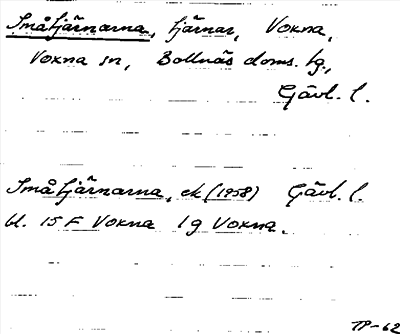 Småtjärnarna, tjärnar, Voxna,
Voxna sn, Bollnäs doms. lg.,
Gävl. l.
Småtjärnarna, ek (1958) Gävl. l.
bl. 15 F Voxna 1 g Voxna.
TP-62